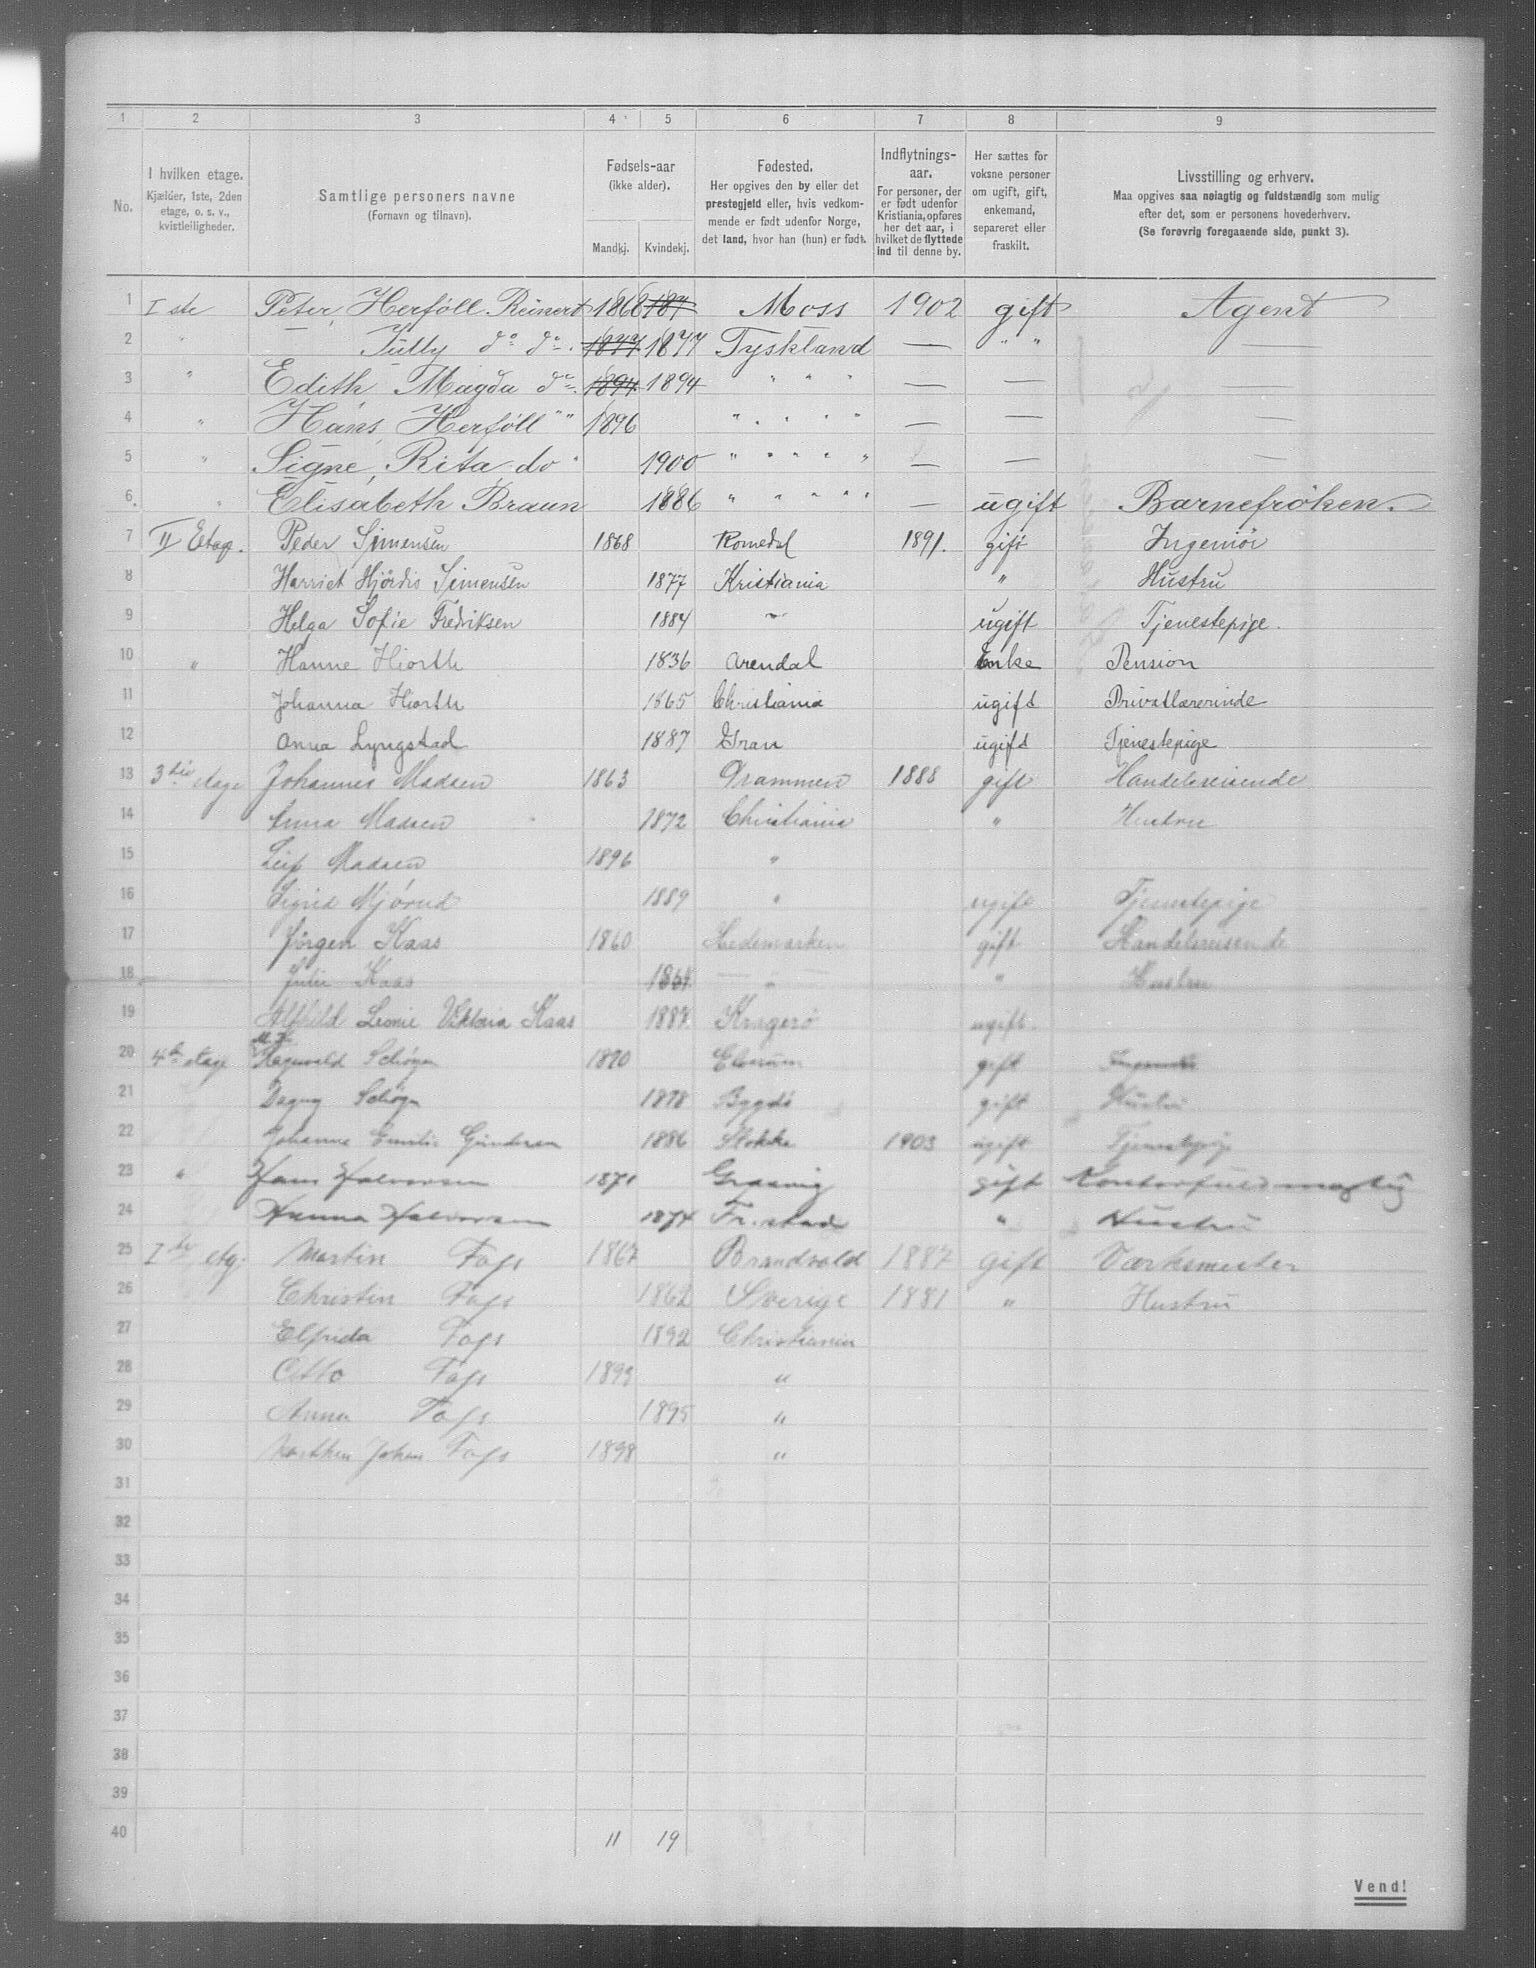 1 2 3 4 5 6 7 8 9
No.
I hvilken etage.
Kjælder, 1ste, 2den
etage, o. s. v.,
kvistleiligheder.
Samtlige personers navne
(Fornavn og tilnavn).
Fødsels-aar
(ikke alder).
Mandkj. Kvindekj.
Fødested.
Her opgives den by eller det
prestegjeld eller, hvis vedkom-
mende er født udenfor Norge,
det land, hvor han (hun) er født.
Indflytnings-
aar.
For personer, der
er født udenfor
Kristiania, opføres
her det aar, i
hvilket de flyttede
ind til denne by.
Her sættes for
voksne personer
om ugift, gift,
enkemand,
separeret eller
fraskilt.
Livsstilling og erhverv.
Maa opgives saa nøiagtig og fuldstændig som mulig
efter det, som er personens hovederhverv.
(Se forøvrig foregaaende side, punkt 3).
1 I ste Peter Herföll Reinert 1868 187 Moss 1902 gift Agent
2 " — Tully do do. 1877 1877 Tyskland — " " —
3 " Edith, Magda do 1894 1894 " " " — — —
4 " Hans, Herföll " " 1896 " " " " — — —
5 " Signe, Rita do " 1900 " " " " " — — —
6. " Elisabeth Braun 1886 " " " " " — ugift Barnefröken.
7 II Etage. Peder Simensen 1868 Romedal 1891. gift Ingeniør
8 Harriet Hjørdis Simensen 1877 Kristiania " Hustru
9 Helga Sofie Fredriksen 1884 " ugift Tjenestepige.
10 " Hanne Hiorth 1836 Arendal Enke Pension
11 Johanna Hiorth 1865 Christiania ugift Privatlærerinde
12 Anna Lyngstad 1887 Gran ugift Tjenestepige
13 3die etage Johannes Madsen 1863 Drammen 1888 gift Handelsreisende
14 Anna Madsen 1872 Christiania " Hustru
15 Leif Madsen 1896 "
16 Sigrid Mjørud 1889 " ugift Tjenestepige
17 Jørgen Kaas 1860 Hedemarken gift Handelsreisende
18 Julie Kaas 1864 — " — " Hustru
19 Alfhild Leonie Viktoria Kaas 1887 Kragerø ugift.
20 4de etage Ragnvald Schøyen 1870 Elverum gift
21 Dagny Schøyen 1878 Bygdø gift Hustru
22 Johanne Emilie Gundersen 1886 Stokke 1903 ugift Tjenestepige
23 " Hans Halvorsen 1871 gift Kontorfuldmægtig
24 Hanna Halvorsen 1874 Fr.stad " Hustru
25 I ste etg. Martin Fogs 1867 Brandvold 1887 gift Værksmester
26 Christin Fogs 1862 Sverige 1881 " Hustru
27 Elfrida Fogs 1892 Christiania
28 Otto Fogs 1893 "
29 Anna Fogs 1895 "
30 Johan Fogs 1898 "
31
32
33
34
35
36
37
38
39
40 11 19
Vend!